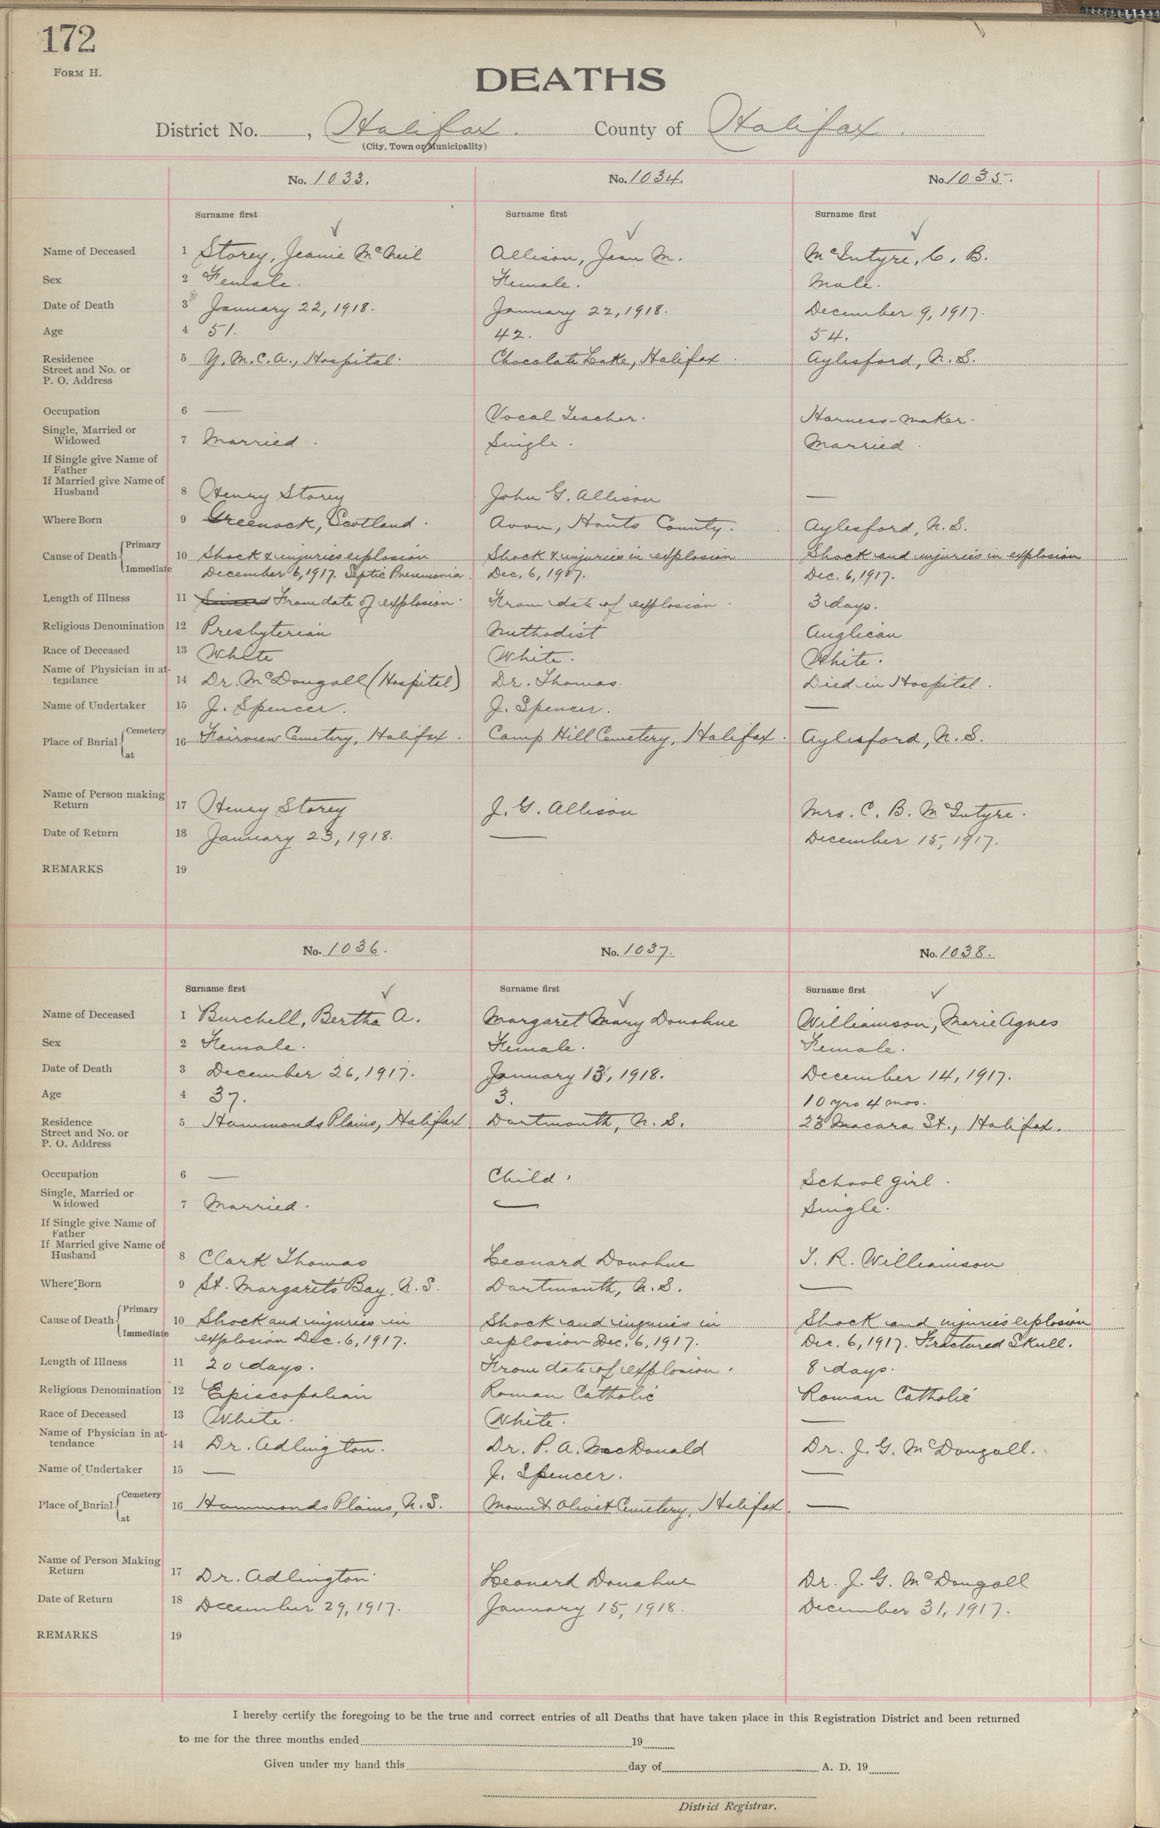 172
FORM H.
DEATHS
District No. , Halifax. County of Halifax.
(City, Town or Municipality)
No. 1033. No. 1034. No. 1035.
Surname first Surname first Surname first
Name of Deceased 1 Storey, Jeanie McNeil Allison, Jean M. McIntyre, C. B.
Sex 2 Female. Female. Male.
Date of Death 3 January 22, 1918. January 22, 1918. December 9, 1917.
Age 4 51. 42. 54.
Residence Street and No. or P. O. Address 5 Y.M.C.A., Hospital. Chocolate Lake, Halifax. Aylesford, N.S.
Occupation 6 — Vocal Teacher. Harness-maker.
Single, Married or Widowed 7 Married. Single. Married
If Single give Name of Father
If Married give Name of Husband 8 Henry Storey John G. Allison —
Where Born 9 Greenock, Scotland. Avon, Hants County. Aylesford, N.S.
Cause of Death Primary 10 Shock & injuries explosion Shock & injuries in explosion Shock and injuries in explosion
Immediate December 6, 1917. Septic Pneumonia. Dec. 6, 1917. Dec. 6, 1917.
Length of Illness 11 From date of explosion. From date of explosion. 3 days.
Religious Denomination 12 Presbyterian Methodist Anglican
Race of Deceased 13 White White. White.
Name of Physician in attendance 14 Dr. McDougall (Hospital) Dr. Thomas. Died in Hospital.
Name of Undertaker 15 J. Spencer. J. Spencer. —
Place of Burial Cemetery at 16 Fairview Cemetery, Halifax. Camp Hill Cemetery, Halifax. Aylesford, N.S.
Name of Person making Return 17 Henry Storey J. G. Allison Mrs. C. B. McIntyre.
Date of Return 18 January 23, 1918. — December 15, 1917.
REMARKS 19
No. 1036. No. 1037. No. 1038.
Surname first Surname first Surname first
Name of Deceased 1 Burchell, Bertha A. Margaret Mary Donohue Williamson, Marie Agnes
Sex 2 Female. Female. Female.
Date of Death 3 December 26, 1917. January 13, 1918. December 14, 1917.
Age 4 37. 3. 10 yrs 4 mos.
Residence Street and No. or P. O. Address 5 Hammonds Plains, Halifax Dartmouth, N.S. 23 Macara St., Halifax.
Occupation 6 — Child. School girl.
Single, Married or Widowed 7 Married. — Single.
If Single give Name of Father
If Married give Name of Husband 8 Clark Thomas Leonard Donohue T. R. Williamson
Where Born 9 St. Margarets Bay, N.S. Dartmouth, N.S. —
Cause of Death Primary 10 Shock and injuries in Shock and injuries in Shock and injuries explosion
Immediate explosion Dec. 6, 1917. explosion Dec. 6, 1917. Dec. 6, 1917. Fractured Skull.
Length of Illness 11 20 days. From date of explosion. 8 days.
Religious Denomination 12 Episcopalian Roman Catholic Roman Catholic
Race of Deceased 13 White. White. —
Name of Physician in attendance 14 Dr. Adlington. Dr. P. A. MacDonald Dr. J. G. McDougall.
Name of Undertaker 15 — J. Spencer. —
Place of Burial Cemetery at 16 Hammonds Plains, N.S. Mount Olivet Cemetery, Halifax. —
Name of Person Making Return 17 Dr. Adlington Leonard Donahue Dr. J. G. McDougall
Date of Return 18 December 29, 1917. January 15, 1918. December 31, 1917.
REMARKS 19
I hereby certify the foregoing to be the true and correct entries of all Deaths that have taken place in this Registration District and been returned
to me for the three months ended 19
Given under my hand this day of A. D. 19
District Registrar.